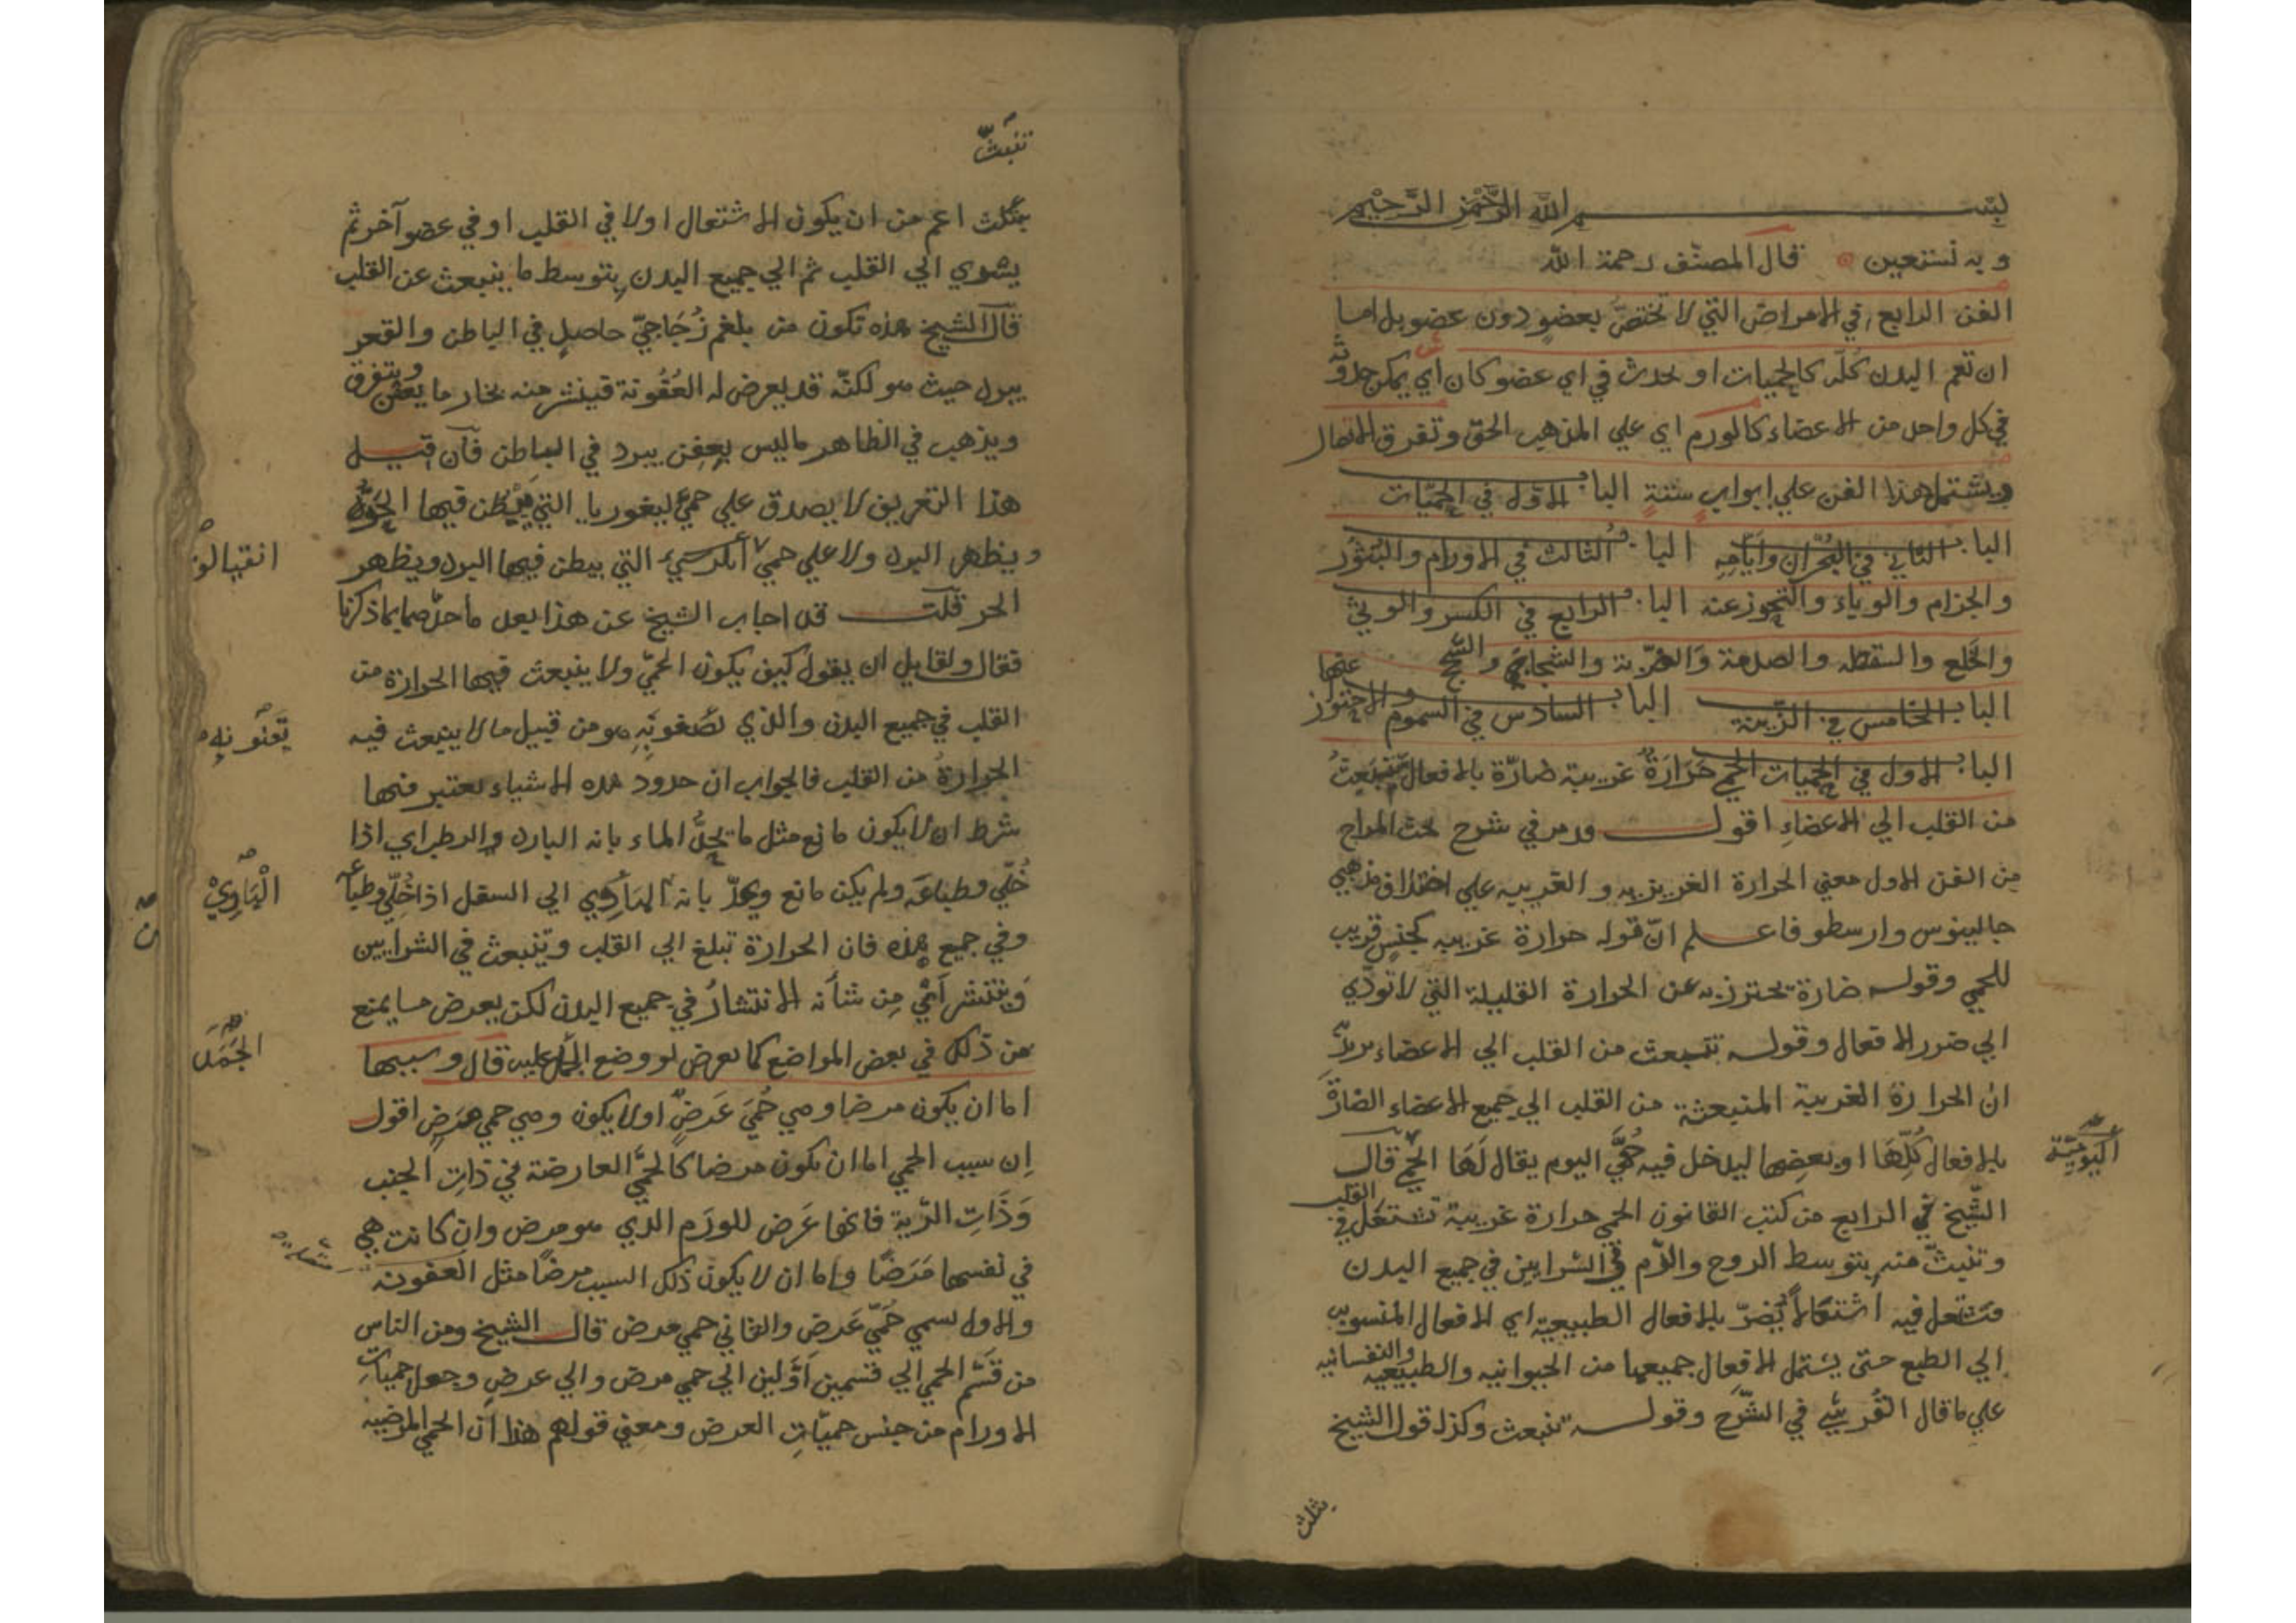 بسم الله الرحمن الرحيم
وبه نستعين قال المصنف رحمة الله
الفن الرابع في الامراض التي لا تختصّ بعضو دون عضو بل اما
ان تعم البدن كلّه كالحميات او تحدث في اي عضو كان أي يمكن حدوثه
في كل واحد من الاعضاء كالورم اي علي المذهب الحق وتفرق الاتصال
ويشتمل هذا الفن علي ابواب ستةٍ الباب الاول في الحميّات
الباب الثاني في البُحْران وأيّامِهِ الباب الثالث في الاورام والبُثُور
والجزام والوباء والتحوز عنه الباب الرابع في الكسر والوثي
والخَلع والسقطه والصدمة والضّربة والشجاج والسَّحج
الباب الخامس في الزّينة الباب السادس في السموم والاحتوز عنها
الباب الاول في الحميات الحمي حَرَارَةٌ غريبية ضارّة بالافعال تنبَعثُ
من القلب الي الاعضاءِ اقول ودمر في شرح بحث المزاج
من الفن الاول معني الحرارة الغريزيه والغريبه علي اختلاف مذهبي
جالينوس وارسطو فاعلم انّ قوله حرارة غريبه كجنسٍ قريب
للحمي وقوله ضارة يحترز به عن الحرارة القليلة التي لا تودّي
الي ضرر الافعال وقوله تنبعث من القلب الي الاعضاء يريدُ
ان الحرارة الغريبة المنبعثة من القلب الي جميع الاعضاء الضارّة
بالافعال كُلّهَا او بعضِها ليدخل فيه حُمَّي اليوم يقال لَهَا الحمي قال
اليَوْمِيَّة
الشّيخ في الرابع من كتب القانون الحمي حرارة غريبية تشتعل في القلب
وتنبثّ منه بتوسط الروح والدّم في الشرايين في جميع البدن
فتشتعل فيه اشتعالاً يُضرّ بالافعال الطبيعية اي الافعال المنسوب
الي الطبع حتي يشتمل الافعال جميعها من الحيوانيه والطبيعيه والنفسانيه
علي ما قال القُرشيُّ في الشّرح وقوله تنبعث وكذا قول الشيخ
تنبثّ
اعم من ان يكون الاشتعال اولا في القلب او في عضو آخر ثم
يشوي الي القلب ثم الي جميع البدن بتوسط ما ينبعث عن القلب
قال الشيخ هذه تكون من بلغم زُجَاجيّ حاصلٍ في الباطن والقعر
يبرد حيث هو لكنّه قد يعرض له العُفُونة فينشر منه بخار ما يعفن ويتفرق
ويذهب في الظاهر ماليس يعفن يبرد في الباطن فآن قيل
هذا التعريف لا يصدق علي حميّ ليغوريا التي يبطن فيها الحرّ
ويظهر البرد ولا علي حمي التي يبطن فيها البرد ويظهر
انقيالوَ
الحر قلت قد اجاب الشيخ عن هذا بعد ما حدّها بما ذكرنا
فقال ولقايل ان يقول كيف يكون الحمّي ولا ينبعث فيها الحرارة من
القلب في جميع البدن والذي تصفونَهِ هو من قبيل ما لا ينبعث فيه
الحرارةُ من القلب فالجواب ان حدود هذه الاشياء يعتبر فيها
شرط ان لا يكون مانع مثل ما يُحدُّ الماء بانه البارد والرطب اي اذا
خُلّي وطباعَه ولم يكن مانع ويحدّ بانه الهَاوِي الي السفل اذا خُلّي وطباعه
الْهَاوِيْ
وفي جميع هذه فان الحرارة تبلغ الي القلب وتنبعث في الشرايين
وَينتشر أيْ مِن شأنه الانتشارُ في جميع البدن لكن يعرض ما يمنع
من ذلك في بعض المواضع كما يعرض لو وضع عليه قال وسببها
الجَمَدَ
اما ان يكون مرضا وهي حُمَيّ عَرَضٌ اولا يكون وهي حمي مرَضٍ اقول
اِن سبب الحمي اما ان يكون مرضا كالحُمّي العارضة في ذاتِ الجنب
وَذَاتِ الرّيةِ فانها عَرَض للورَم الذي هو مرض وان كانت هي
في نفسها مَرَضًا واما ان لا يكون ذلك السبب مرضًا مثل العفونه
والاول يسمي حُمّي عَرَضٍ والثاني حمي مرض قال الشيخ ومن الناس
من قسّم الحمي الي قسمين أوَّلين الي حمي مرض والي عرضٍ وجعل حميات
الاورام من جنس حميّاتِ العرض ومعني قولهم هذا أن الحمي المرضيه